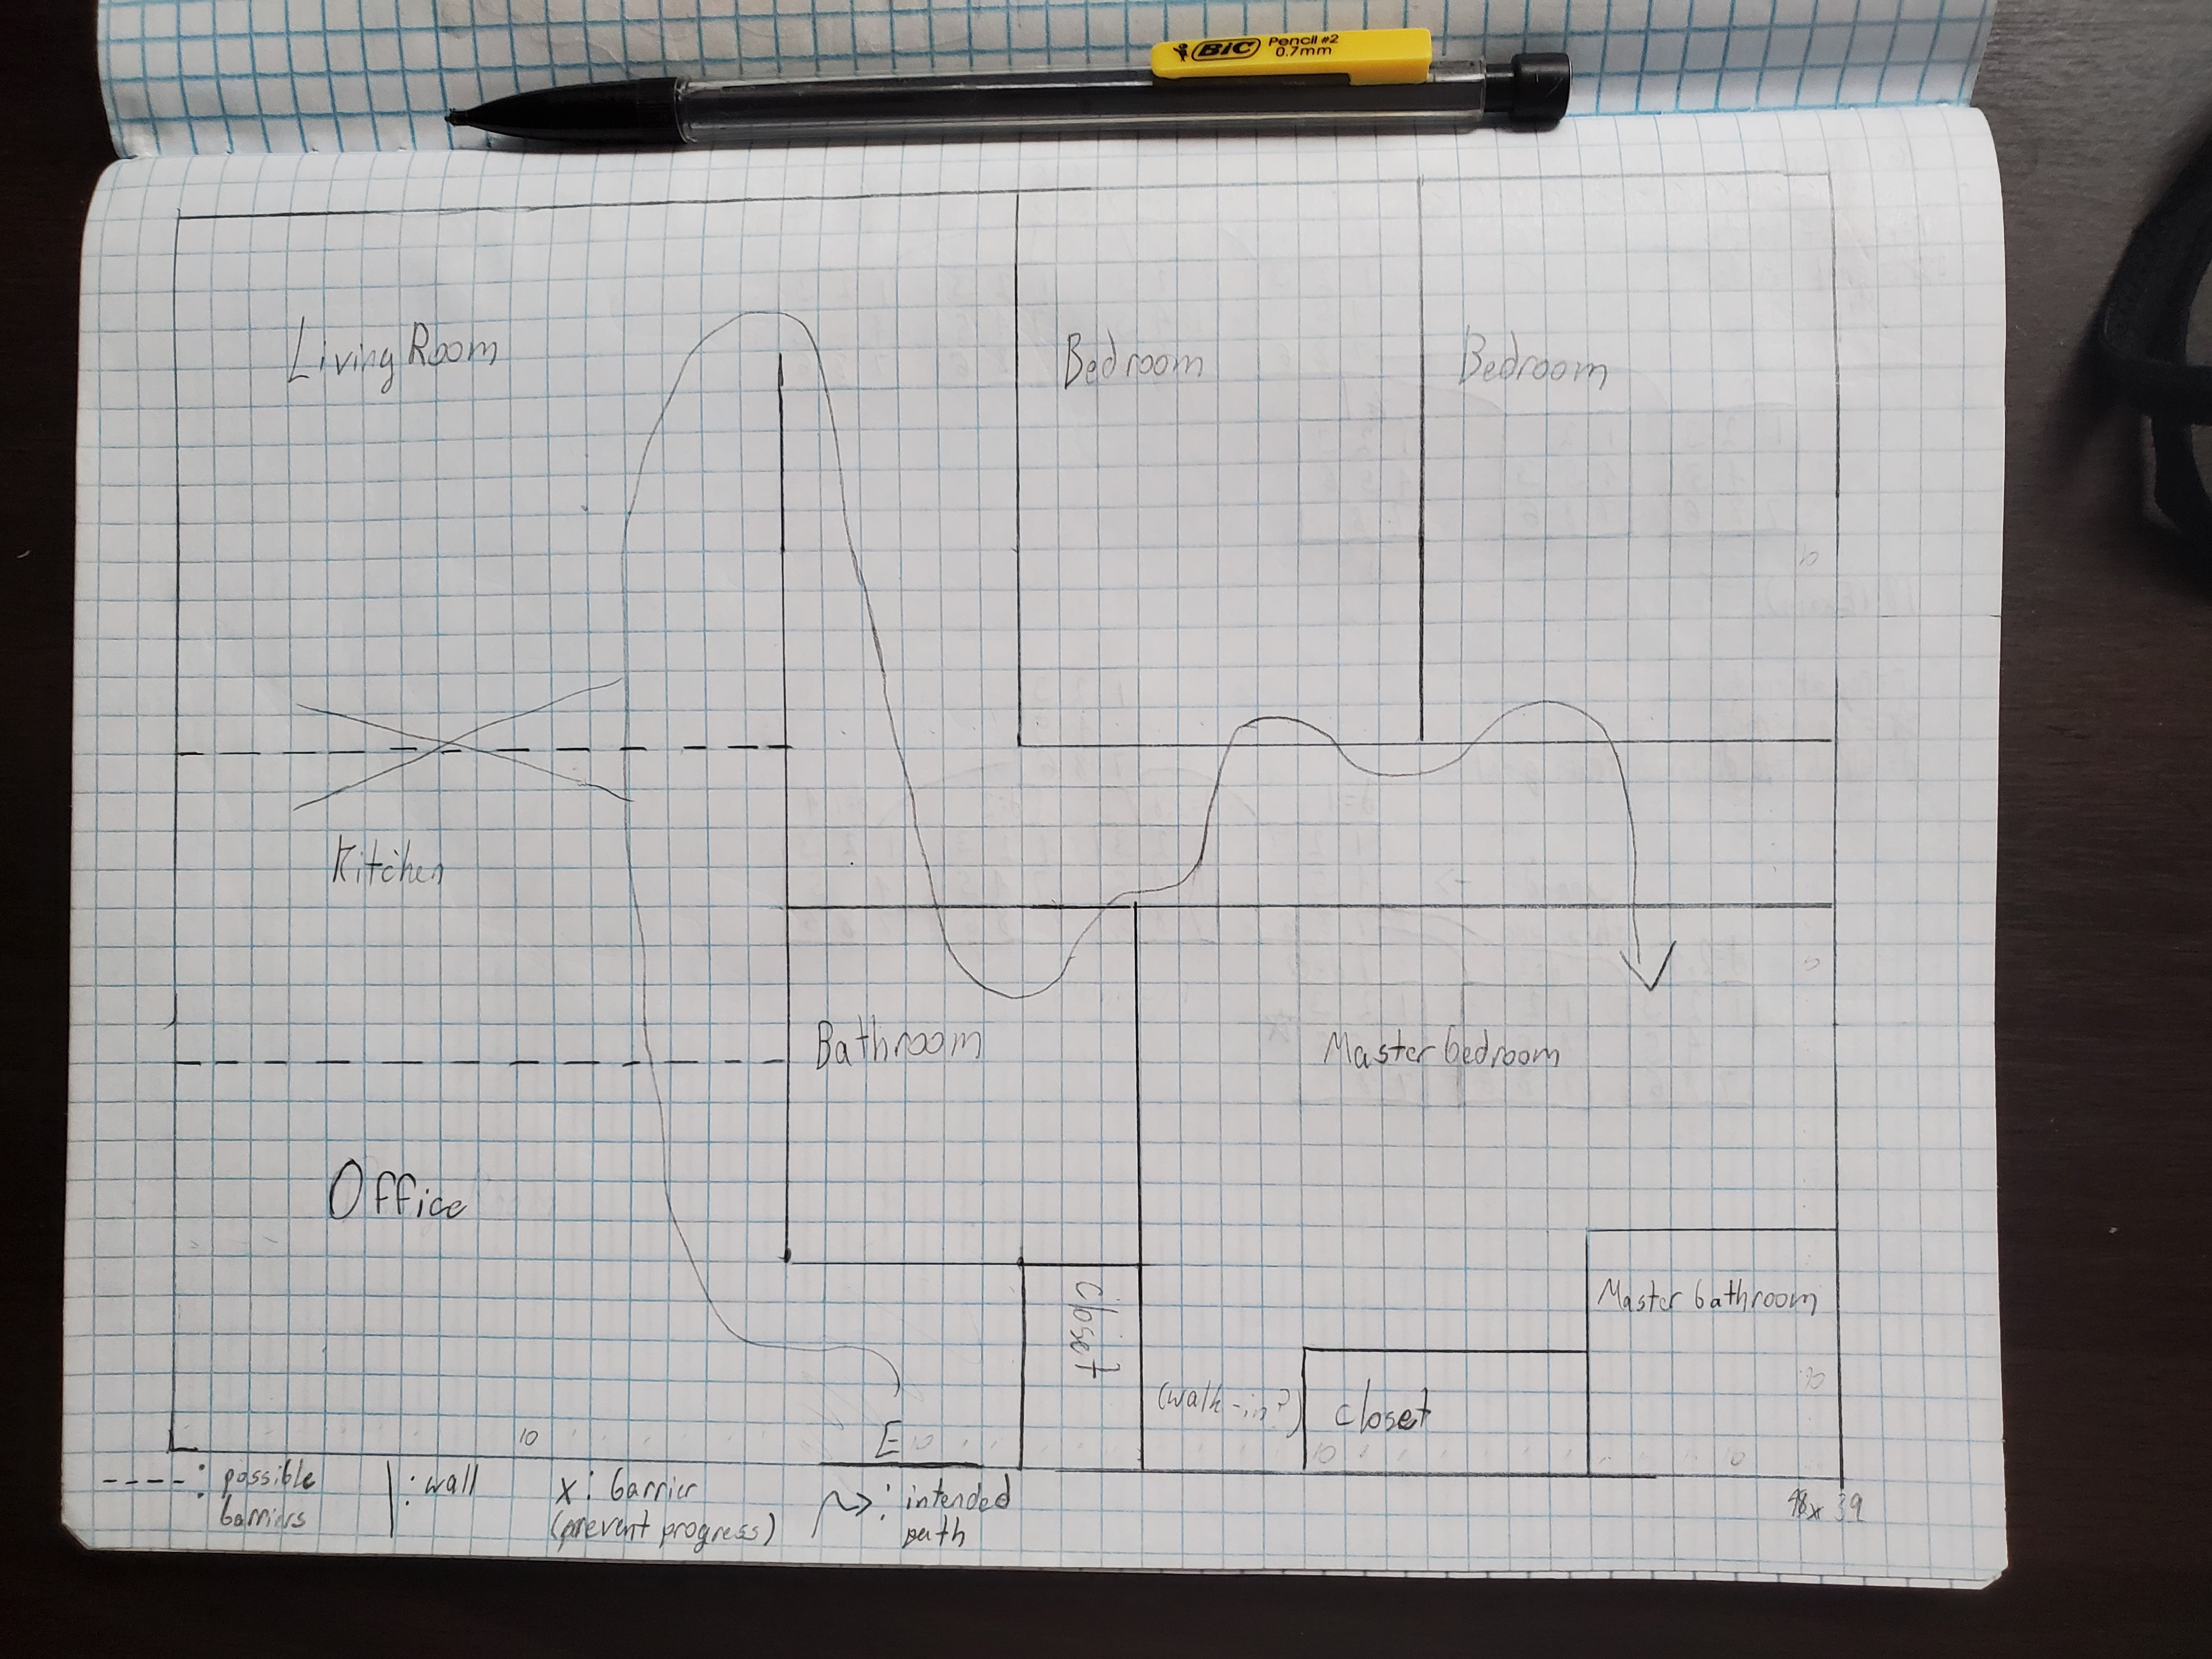 BIC Pencil #2
0.7mm
Living Room
Bedroom
Bedroom
Kitchen
Bathroom
Master bedroom
Office
Master bathroom
closet
(walk-in?)
closet
10
E 10
10
10
----: possible
barriers
|: wall
x: barrier
(prevent progress)
: intended
path
x 39